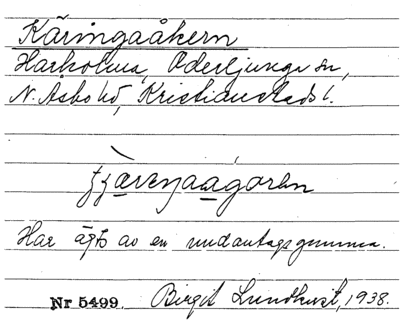 Käringaåkern
Harkolma, Oderljunga sn,
N. Åsbo hd, Kristianstads l.
Har ägts av en undantagsgumma.
Nr 5499. Birgit Lundkvist, 1938.